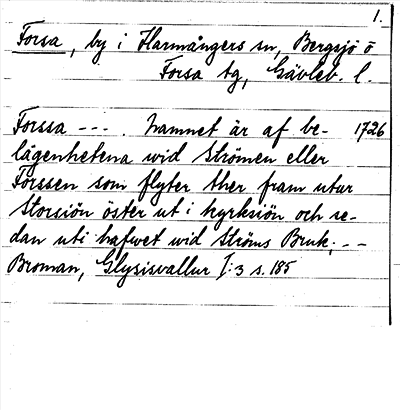 1.
Forsa, by i Harmångers sn, Bergsjö o
Forsa tg, Gävleb. l.
Forssa ---. Namnet är af be- 1726
lägenhetena wid Strömen eller
Forssen som flyter ther fram utur
Storsiön öster ut i kyrksiön och se-
dan uti hafwet wid Ströms Bruk; --
Broman, Glysisvallur I:3 s. 185